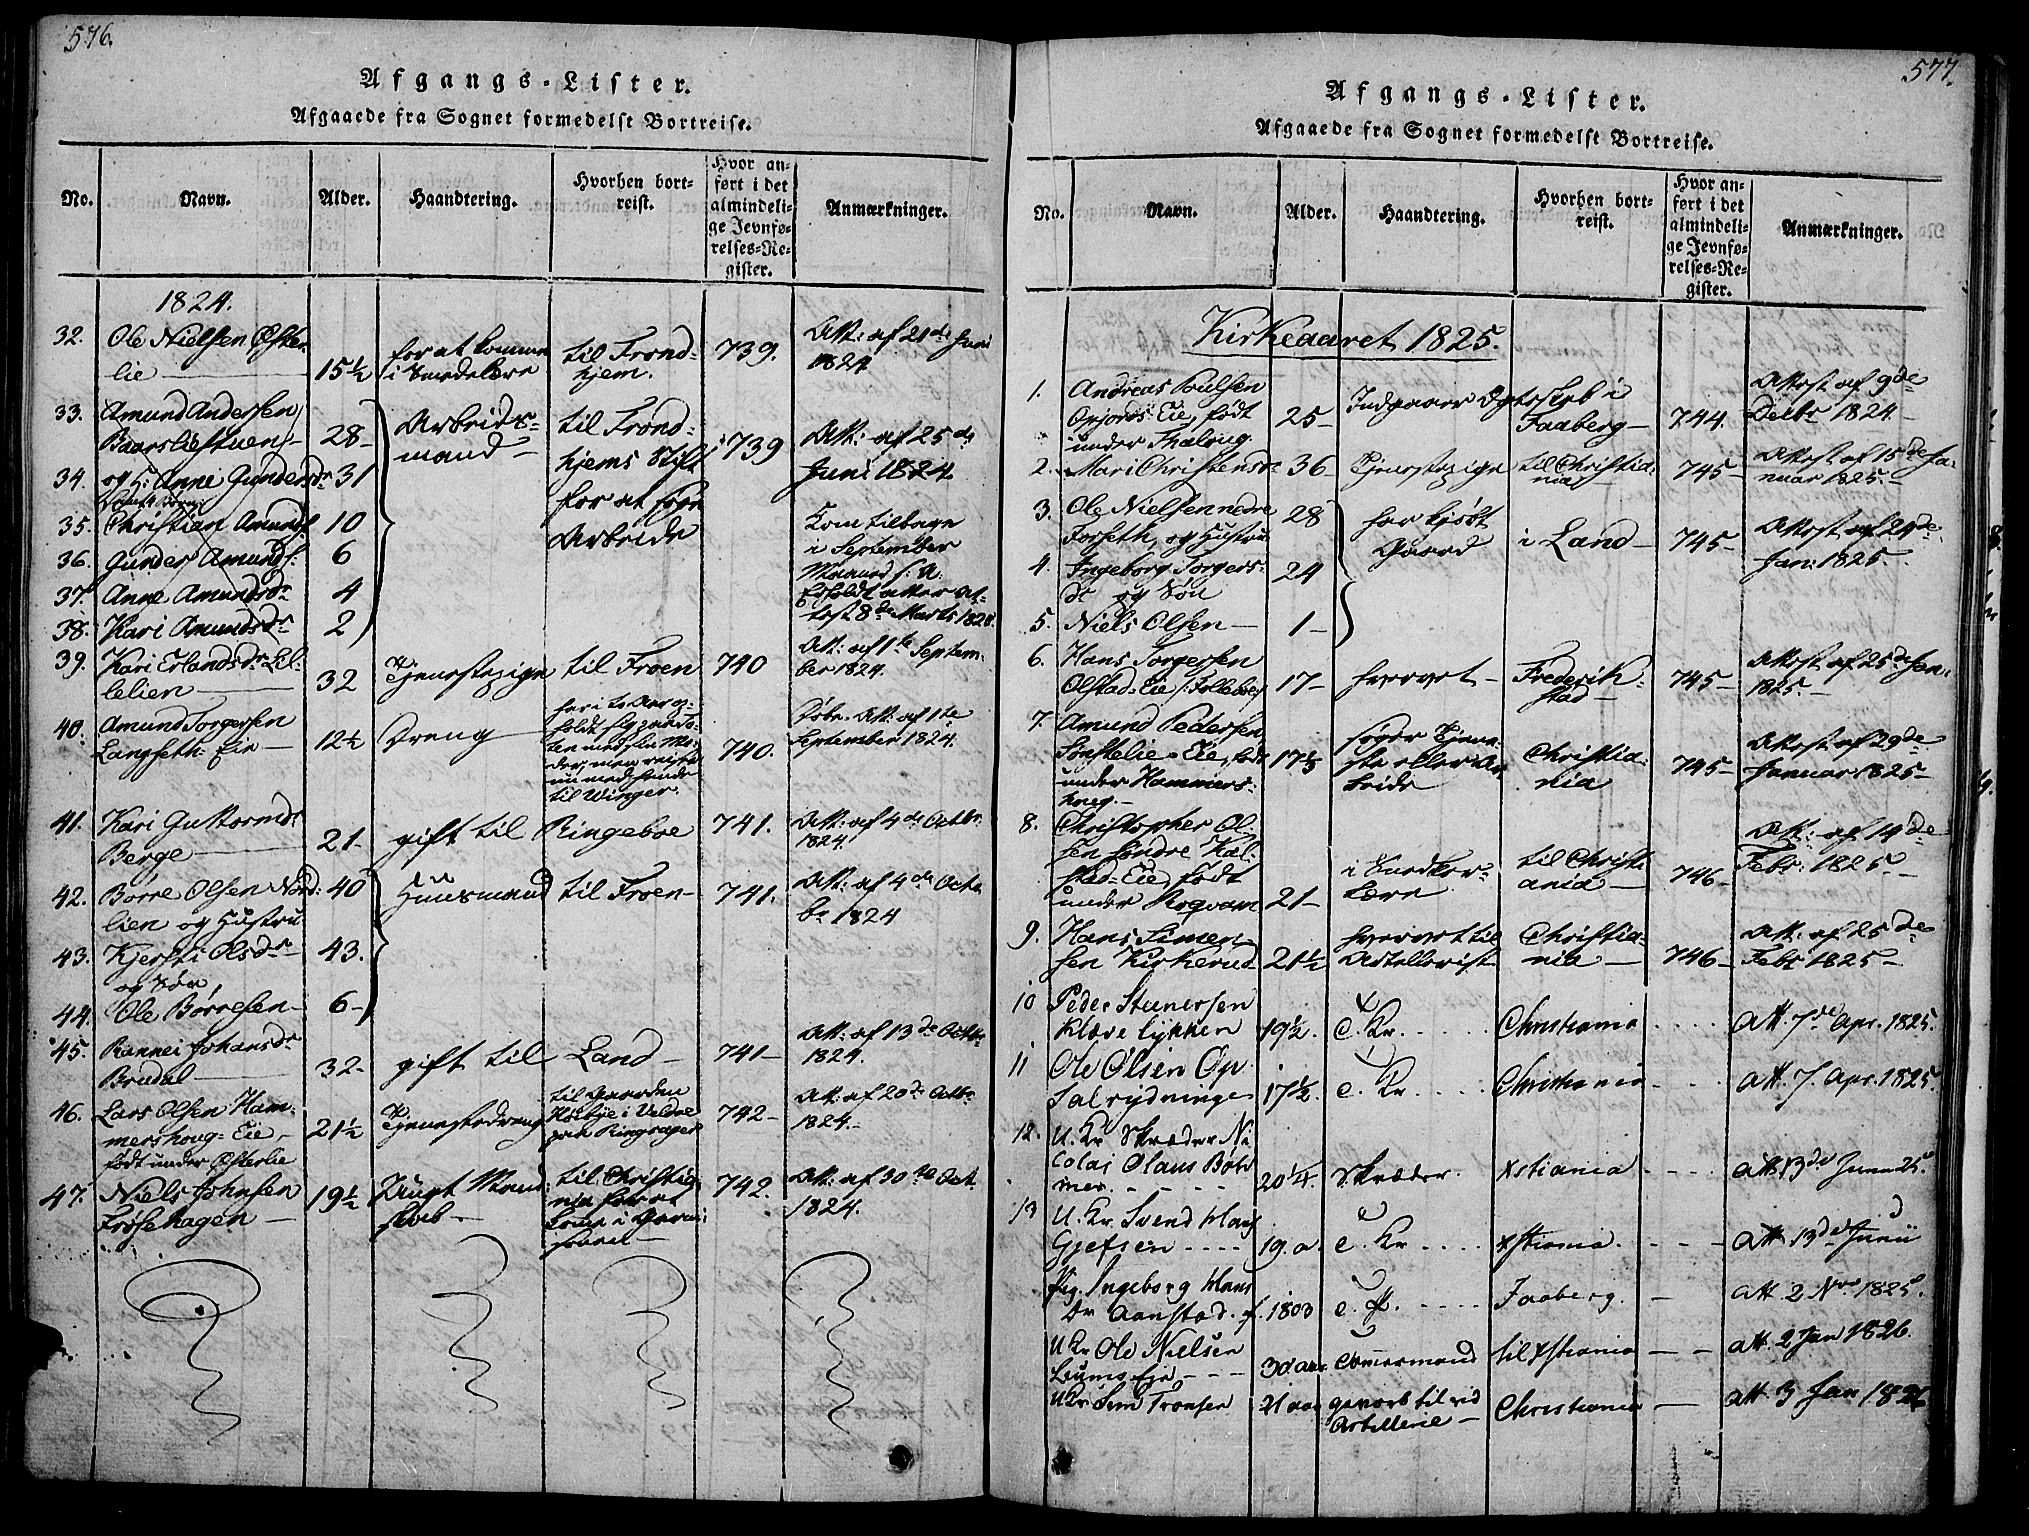 576.
Afgangs-Lister.
Afgaaede fra Sognet formedelst Bortreise.
No. Navn. Alder. Haandtering. Hvorhen bort-
reist. Hvor an-
ført i det
almindeli-
ge Jevnfø-
relses-Re-
gister. Anmærkninger.
1824.
32. Ole Nielsen Øster-
lie 15½ for at komme
i Smedelære til Trond-
hjem. 739. Att: af 21de Juni
1824
33. Amund Andersen
Baarsliestuen 28 Arbeids-
mand til Trond-
hjems Stift
for at søge
Arbeide 739 Att: af 25de
Juni 1824
34. og H: Anne Gundersdr 31
35. Christian Amunds. 10 Kom tilbage
i September
Maaned s: A:
Erholdt atter At-
test 8de Marts 1828.
36. Gunder Amunds: 6
37. Anne Amundsdr 4
38. Kari Amundsdr 2
39. Kari Erlandsdr Lil-
lelien 32 Tjenestepige til Froen 740 Att: af 1te Septem-
ber 1824.
40. Amund Torgersen
Langseth-Eie 12½ Dreng
nu med hende
til Winger. 740. Att: af 1te
September 1824.
41. Kari Guttormsdr
Berge 21 gift til Ringeboe 741. Att: af 4de Octbr
1824.
42. Børre Olsen Nord-
lien og Hustru 40 Huusmand til Froen 741. Att: af 4de Octo
br 1824
43. Kjersti Olsdr
og Søn, 43.
44. Ole Børresen 6
45. Rannei Johansdr
Brudal 32 gift til Land 741 Att: af 13de Octbr
1824.
46. Lars Olsen Ham-
mershoug-Eie,
født under Østerlie 21½ Tjenestedreng til Gaarden
i Veldre
paa Ringsager 742 Att: af 20de Octbr
1824.
47. Niels Johnsen
Frøsehagen 19½ til Christia-
nia for at
komme i 742. Att: af 30te Oct.
1824.
577.
Afgangs-Lister.
Afgaaede fra Sognet formedelst Bortreise.
No. Navn. Alder. Haandtering. Hvorhen bort-
reist. Hvor an-
ført i det
almindeli-
ge Jevnfø-
relses-Re-
gister. Anmærkninger.
Kirkeaaret 1825.
1. Andreas Poulsen
Opjors-Eie, født
under 25 Indgaaer Ægteskab i
Faaberg 744. Attest af 9de
Decbr 1824
2. Mari Christensdr 36 Tjenestepige til Christia-
nia 745 Attest af 15de Ja-
nuar 1825.
3. Ole Nielsen nedre
Forseth, og Hustru 28 har kjøbt
Gaard i Land 745 Attest af 24de
Jan: 1825.
4. Ingeborg Torgers-
dr og Søn 24
5. Niels Olsen 1
6. Hans Torgersen
Olstad-Eie 17 hvervet Frederik-
stad 745 Attest af 25de Jan.
1825.
7. Amund Pedersen
Eie, født
under Hammers-
houg. 17⅓ søger Tjene-
ste eller Ar-
beide Christia-
nia 745 Attest af 29de
Januar 1825
8. Christopher Ol-
sen søndre Kal-
stad-Eie, født
under 21 i Snedker-
lære til Christi-
ania 746 Att: af 14de
Febr: 1825
9. Hans Simen-
sen Kirkerud 21½ hvervet til
Artellerist Christia-
nia 746 Att: af 25de
Febr 1825
10 Peder Steenersen
Klæve lykken 19½. C. Kr. Christiania Att. 7de Apr. 1825.
11 Ole Olsen Op
Salrydninge 17½ C. Kr Christiania Att. 7. Apr. 1825.
12. U. Kr Skræder Ni
colai Olaus Bøh
mer. 20¼ Skræder. Xstiania Att. 13de Junii 25.
13 U. Kr. Svend Hans
Gjefsen 19. a. C. Kr Xstiania. Att. 13de Junii
Pig. Ingeborg Hans
Dr Aanstad. f. 1803 C. P. Faaberg. Att 2 Nov 1825.
U Kr Ole Nielsen
Liums Eje 30 aar til Xstiania Att. 2 Jan 1826.
U Kr Sim Tronsen 21 aar gevorb til rid
Artillerie Christiania Att. 3 Jan 1826